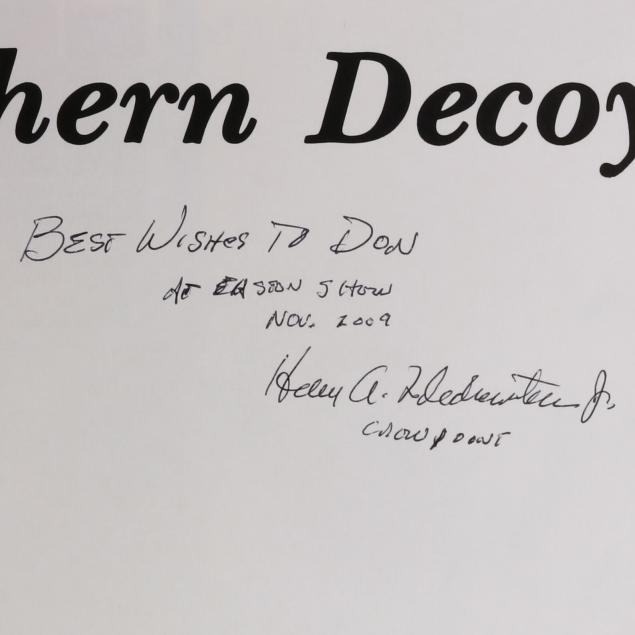 hern Decoy
BEST WISHES TO DON
AT EASTON SHOW
NOV. 2009
Henry A. Jr.